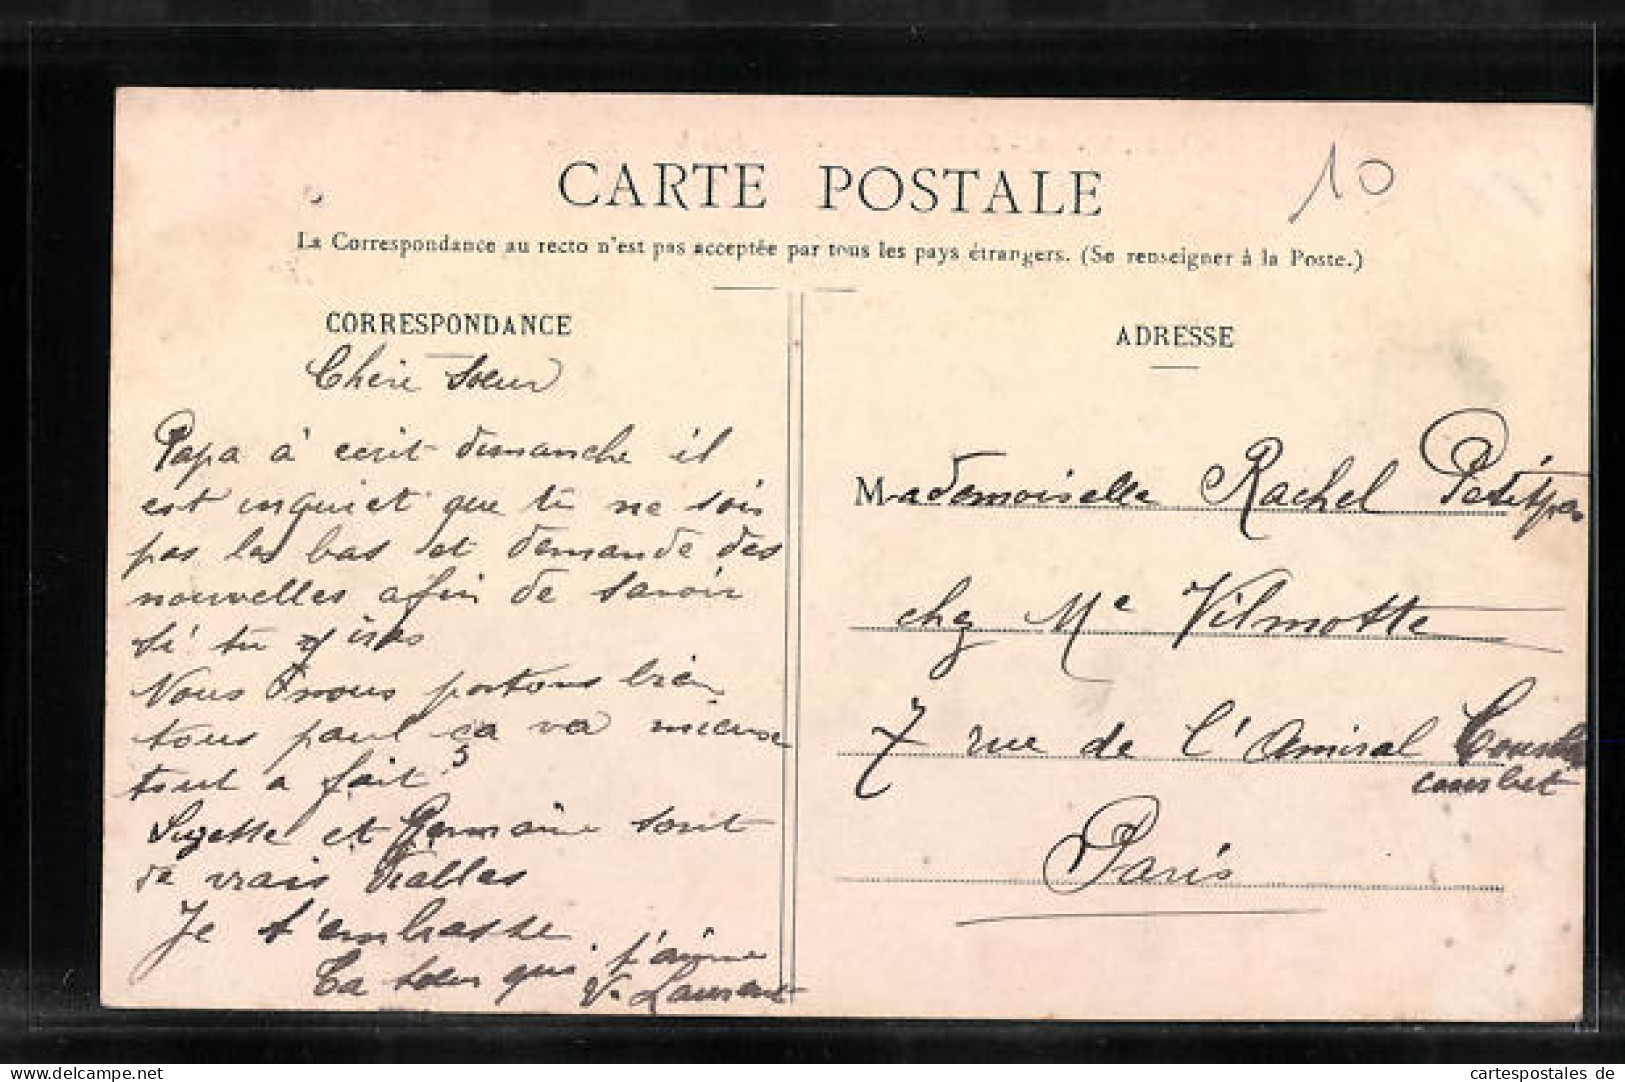 CARTE POSTALE
10
La Correspondance au recto n'est pas acceptée par tous les pays étrangers. (Se renseigner à la Poste.)
CORRESPONDANCE
Chère Soeur
Papa à ecrit dimanche il
est inquiet que tu ne sois
pas la bas et demande des
nouvelles afin de savoir
si tu y iras
Nous nous portons bien
tous paul ça va mieux
tout a fait
Suzette et Germaine sont
de vrais
Je t'embrasse
Ta soeur qui t'aime
V. Laurent
ADRESSE
Mademoiselle Rachel Petitpas
chez Me Vilmotte
7 rue de l'Amiral Courbet
courbet
Paris
cartespostales de